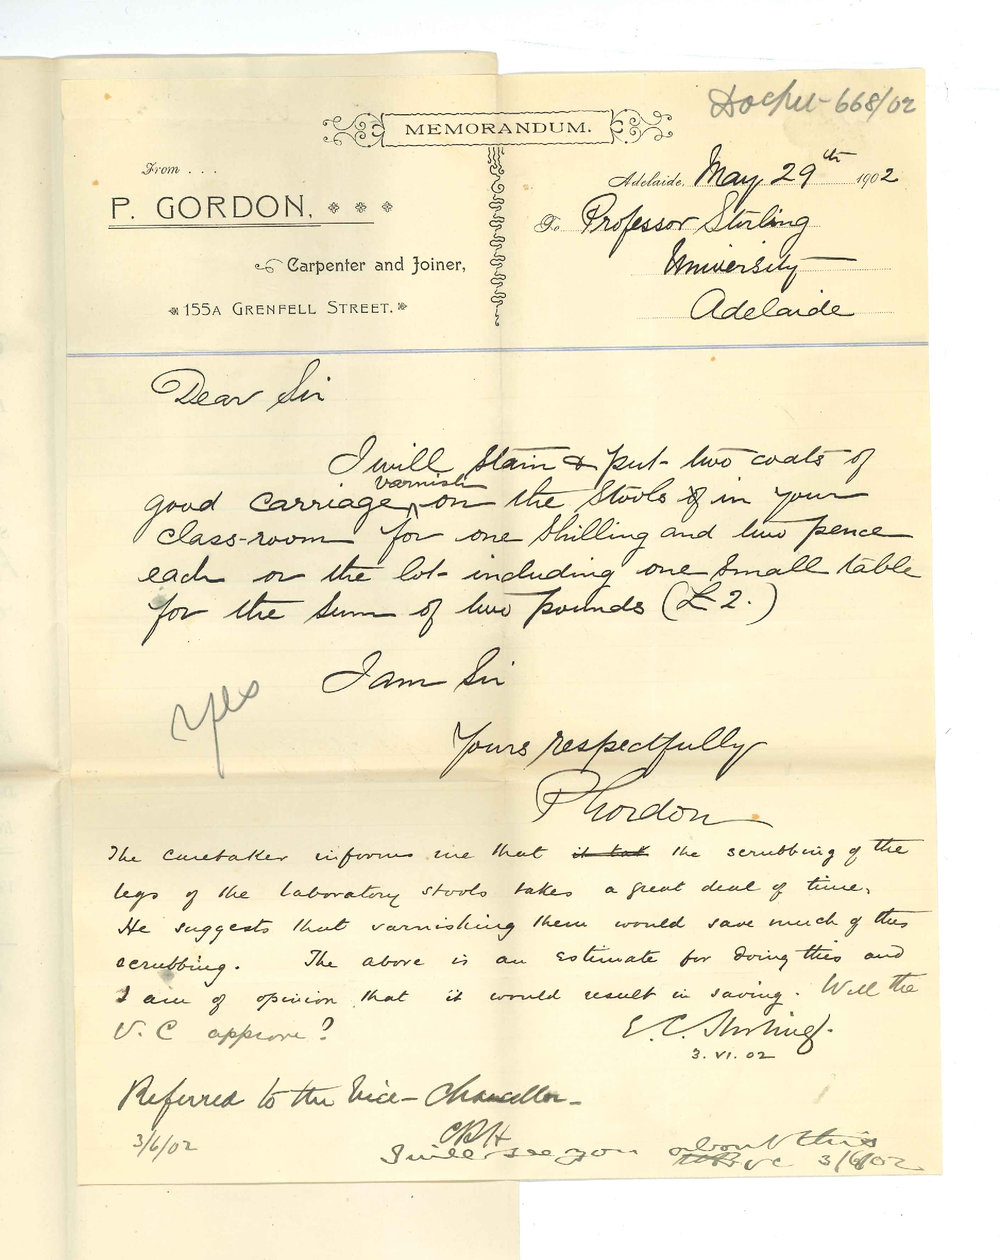 Docket 668/02
MEMORANDUM.
From . . .
P. GORDON,
Carpenter and Joiner,
155A GRENFELL STREET.
Adelaide, May 29th 1902
To Professor Stirling
University
Adelaide
Dear Sir
I will stain & put two coats of
good carriage varnish on the stools in your
class-room for one shilling and two pence
each or the lot including one small table
for the sum of two pounds (£2.)
I am Sir
Yes
Yours respectfully
P Gordon
The caretaker informs me that it tak the scrubbing of the
legs of the laboratory stools takes a great deal of time.
He suggests that varnishing them would save much of this
scrubbing. The above is an estimate for doing this and
I am of opinion that it would result in saving. Will the
V. C approve?
E. C. Stirling.
3. VI. 02
Referred to the Vice-Chancellor
CRH
3/6/02
I will see you about this
VC 3/6/02